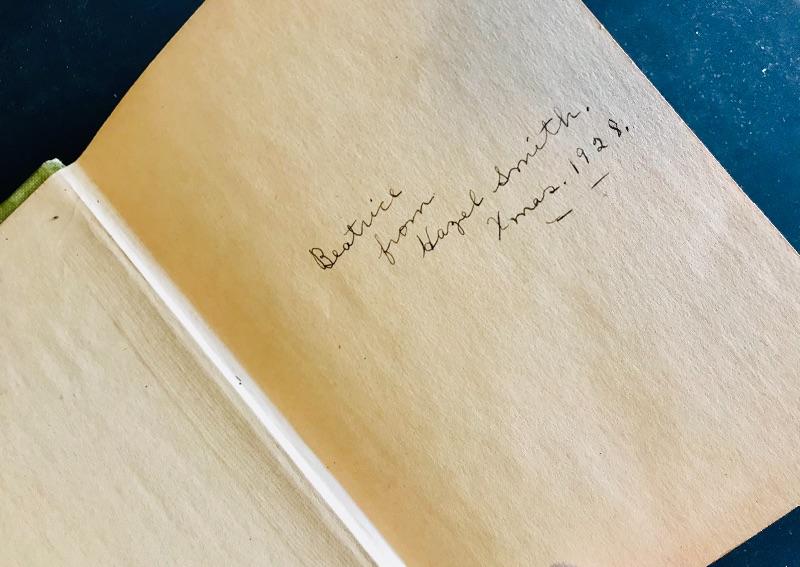 Beatrice
from
Hazel Smith.
Xmas. 1928.